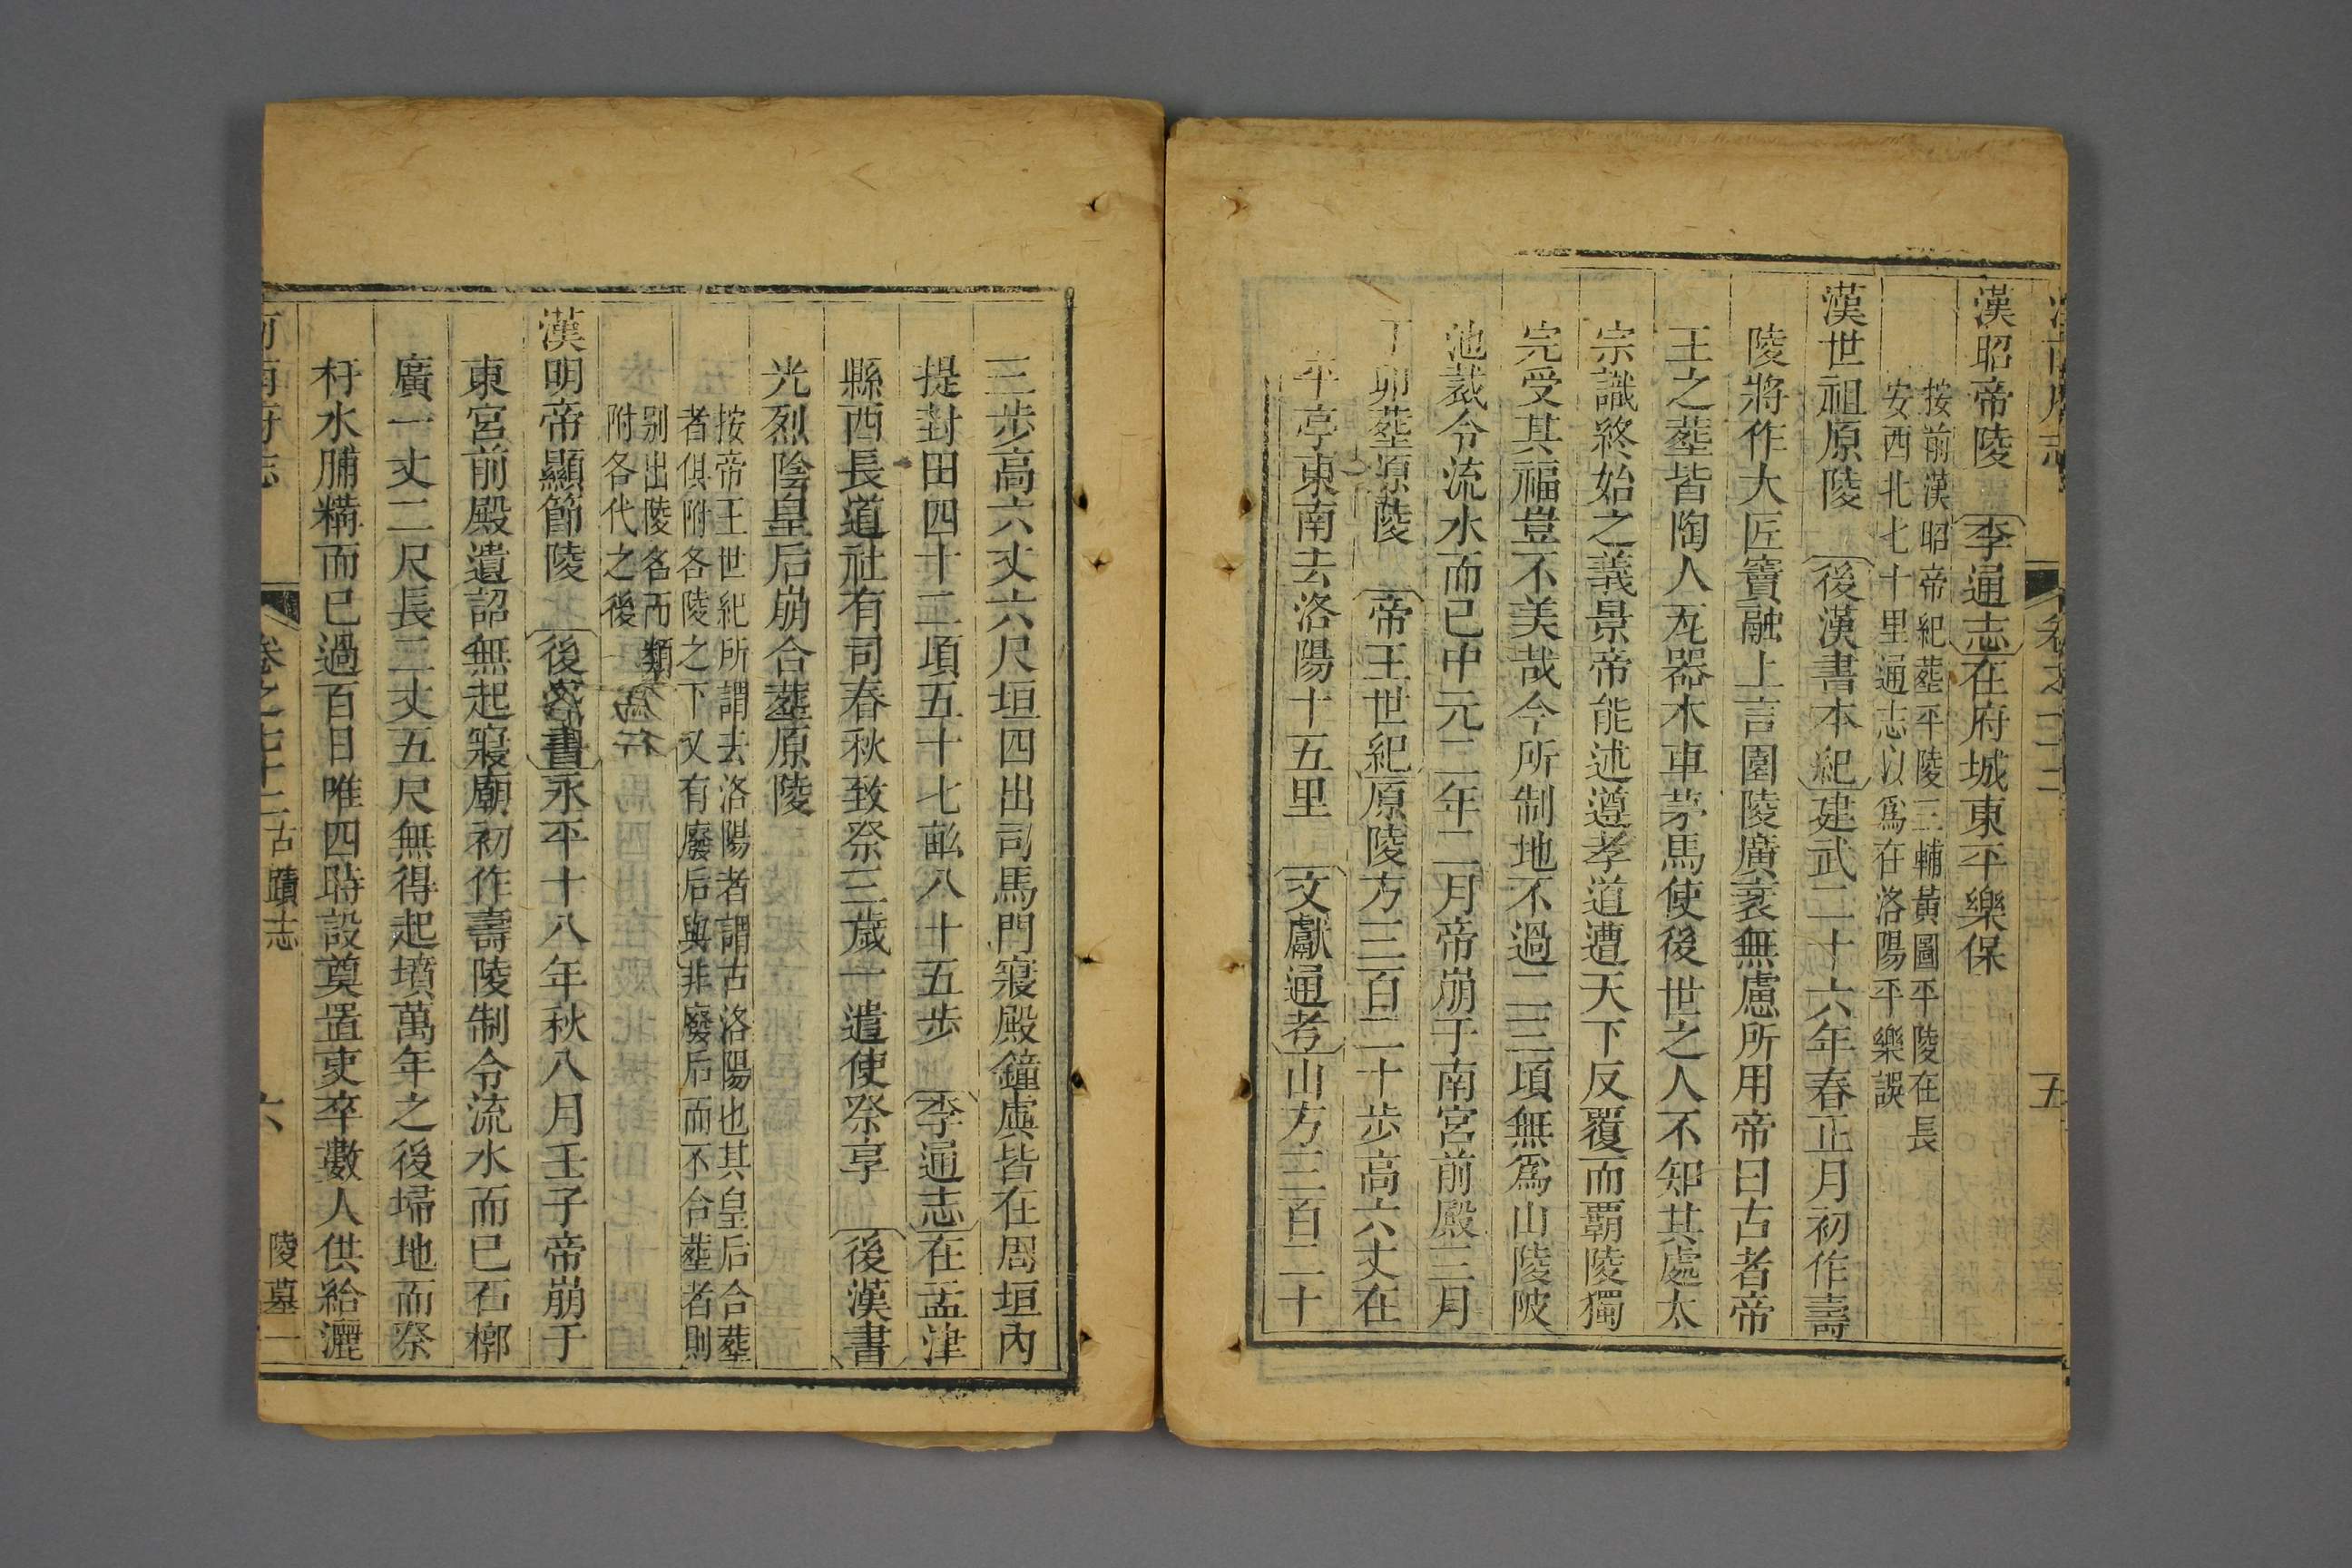 漢昭帝陵 李通志在府城東平樂保
按前漢昭帝紀塟平陵三輔黃圖平陵在長
安西北七十里通志以爲在洛陽平樂誤
漢世祖原陵 後漢書本紀建武二十六年春正月初作壽
陵將作大匠竇融上言園陵廣袤無慮所用帝曰古者帝
王之塟皆陶人瓦器木車茅馬使後世之人不知其處太
宗識終始之義景帝能述遵孝道遭天下反覆而覇陵獨
完受其福豈不美哉今所制地不過二三項無爲山陵陂
池裁令流水而已中元二年二月帝崩于南宮前殿三月
丁卯塟原陵 帝王世紀原陵方三百二十步高六丈在
平亭東南去洛陽十五里 文獻通考山方三百二十
三步高六丈六尺垣四出司馬門寢殿鐘虡皆在周垣內
提封田四十二項五十七畝八十五步 李通志在孟津
縣西長道社有司春秋致祭三歲一遣使祭享 後漢書
光烈陰皇后崩合塟原陵
按帝王世紀所謂去洛陽者謂古洛陽也其皇后合塟
者俱附各陵之下又有廢后與非廢后而不合塟者則
别出陵名而類
附各代之後
漢明帝顯節陵 後漢書永平十八年秋八月壬子帝崩于
東宮前殿遺詔無起寢廟初作壽陵制令流水而已石槨
廣一丈二尺長二丈五尺無得起墳萬年之後埽地而祭
杅水脯糒而已過百日唯四時設奠置吏卒數人供給灑
河南府志 卷之七十二 古蹟志 六 陵墓一